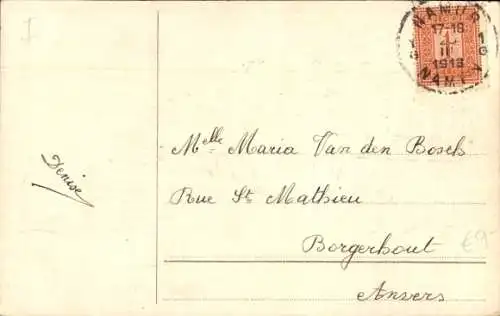 I
NAMUR
17-18
1 G
III
1913
NAM
1
Melle Maria Van den Bosch
Rue St Mathieu
Borgerhout
Anvers
Denise
€9-